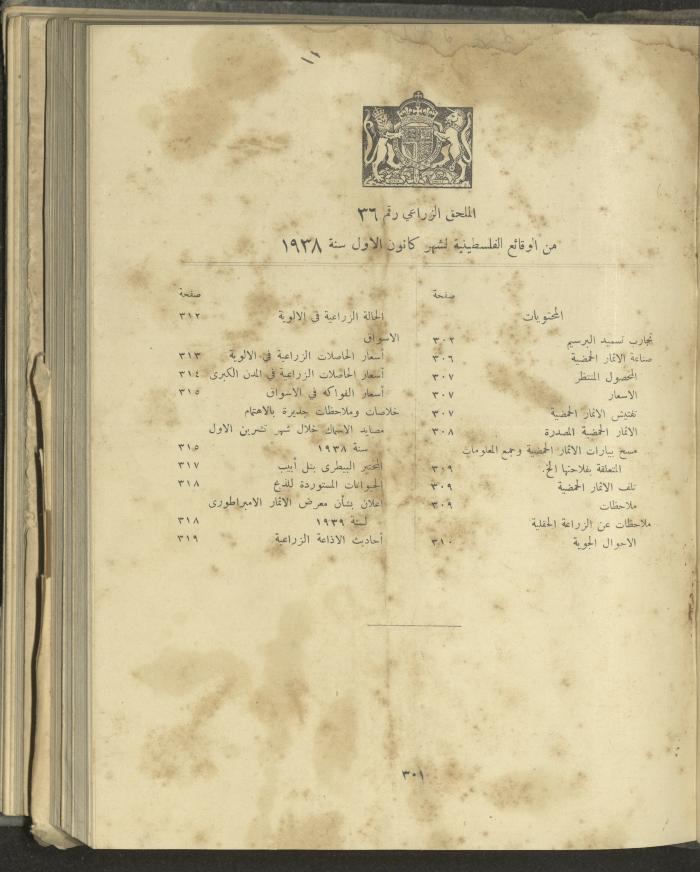 الملحق الزراعي رقم ٣٦
من الوقائع الفلسطينية لشهر كانون الاول سنة ١٩٣٨
صفحة
المحتويات
تجارب تسميد البرسيم ٣٠٢
صناعة الاثمار الحمضية ٣٠٦
المحصول المنتظر ٣٠٧
الاسعار ٣٠٧
تفتيش الاثمار الحمضية ٣٠٧
الاثمار الحمضية المصدرة ٣٠٨
مسح بيارات الاثمار الحمضية وجمع المعلومات
المتعلقة بفلاحتها الخ. ٣٠٩
تلف الاثمار الحمضية ٣٠٩
ملاحظات ٣٠٩
ملاحظات عن الزراعة الحقلية
الاحوال الجوية ٣١٠
صفحة
الحالة الزراعية في الالوية ٣١٢
الاسواق
أسعار الحاصلات الزراعية في الالوية ٣١٣
أسعار الحاصلات الزراعية في المدن الكبرى ٣١٤
أسعار الفواكه في الاسواق ٣١٥
خلاصات وملاحظات جديرة بالاهتمام
مصايد الاسماك خلال شهر تشرين الاول
سنة ١٩٣٨ ٣١٥
المختبر البيطري بتل أبيب ٣١٧
الحيوانات المستوردة للذبح ٣١٨
اعلان بشأن معرض الاثمار الامبراطوري
لسنة ١٩٣٩ ٣١٨
أحاديث الاذاعة الزراعية ٣١٩
٣٠١